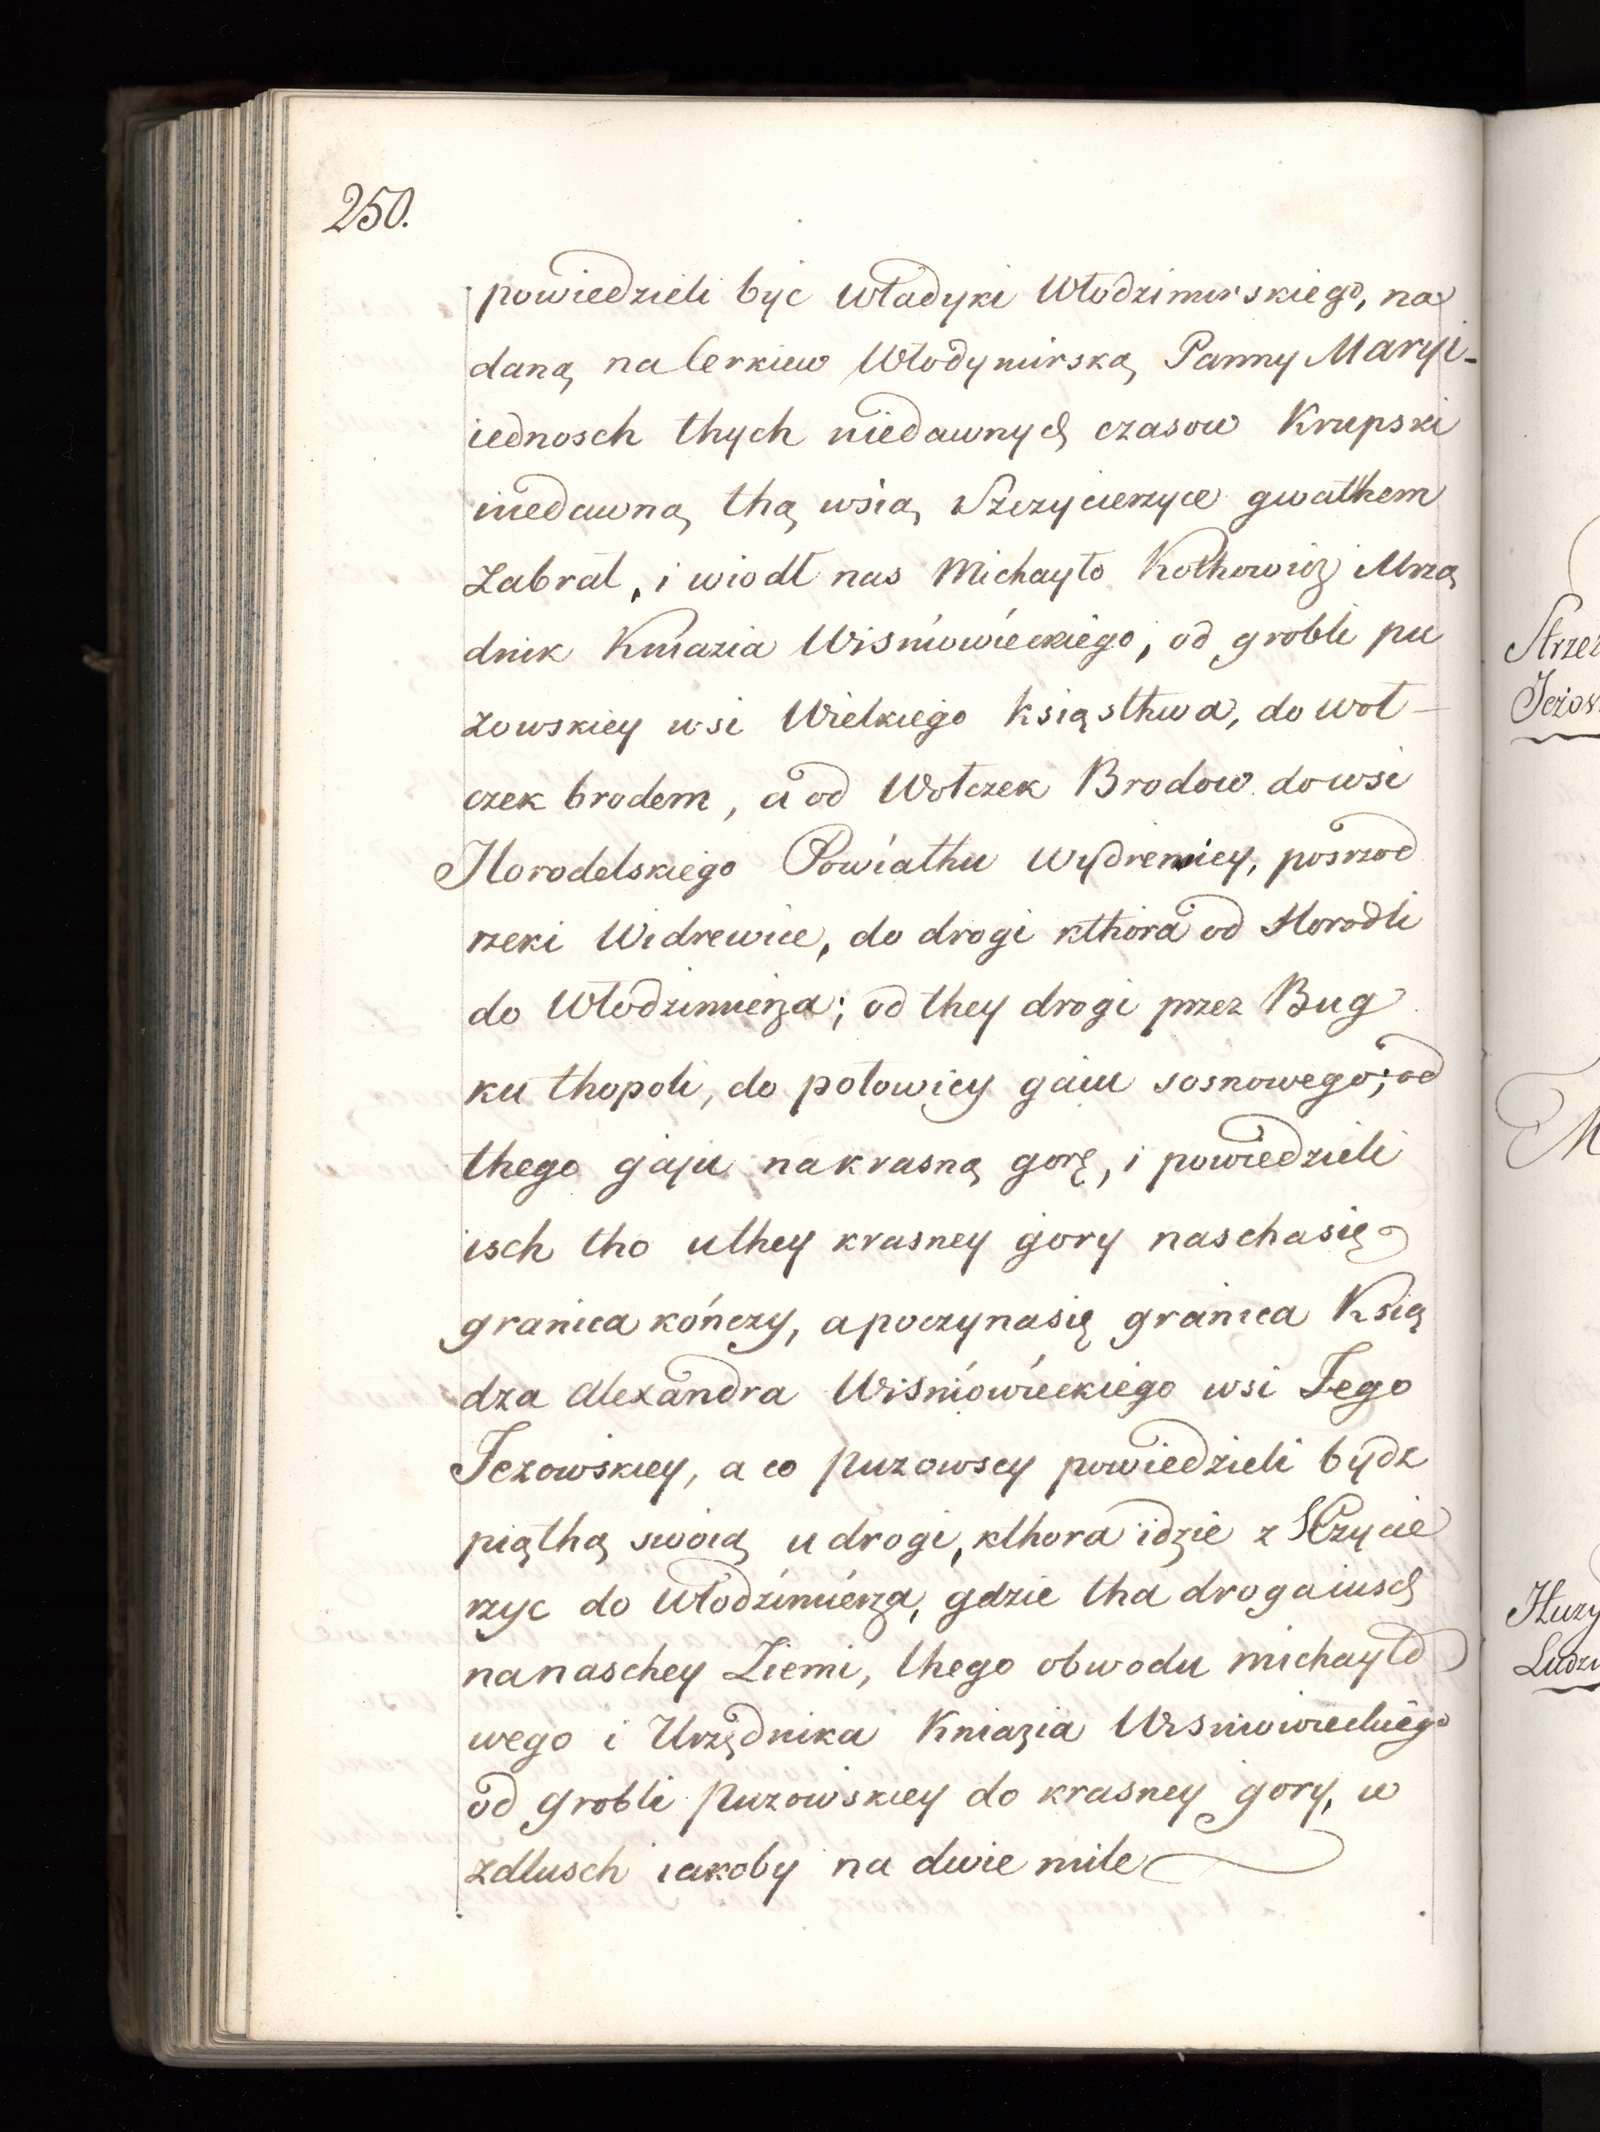 250.
powiedzieli być Władyki Włodzimirskiego, na
daną na Cerkiew Włodymirską Panny Maryi-
iednosch thych niedawnych czasow Krupski
niedawną thą wsią Szczycierzyce gwałthem
Zabrał, i wiodł nas Michayło Kołkowicz i Urzą
dnik Kniazia Wiśniowieckiego, od grobli pu
zowskiey wsi Wielkiego Księsthwa, do woł-
czek brodem, a od Wołczek Brodow do wsi
Horodelskiego Powiathu Wydrenicy, posrzod
rzeki Widrewice, do drogi kthora od Horodli
do Włodzimierza; od they drogi przez Bug
ku thopoli, do połowicy gaiu sosnowego; od
thego gaju na krasną gorę, i powiedzieli
isch tho uthey krasney gory naschasię
granica kończy, a poczynasię granica Ksią
dza Alexandra Wiśniowieckiego wsi Jego
Jezowskiey, a co Puzowscy powiedzieli bydz
piąthą swoią u drogi, kthora idzie z Szczycie
rzyc do Włodzimierza, gdzie tha droga iusch
na naschey Ziemi, thego obwodu michayło
wego i Urzędnika Kniazia Wisniowieckiego
od grobli Puzowskiey do krasney gory, w
zdlusch iakoby na dwie mile
Jeżow
M